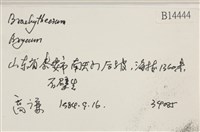 B14444
Brachythecium
Bryaceae
山东省泰安市南天门后坡,海拔1360米
石壁生
高谦 1988.9.16. 34085